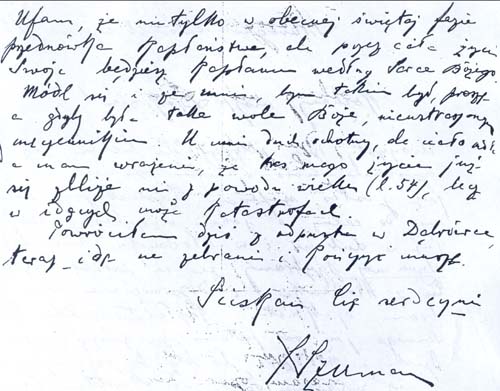 Ufam, że nie tylko w obecnej świętej fazie
przednówka Kapłaństwa, ale przez całe życie
Swoje będziesz Kapłanem według Serca Bożego.
Módl się i ze mnie, bym takim był, proszę
a gdyby była taka wola Boże, nieustraszonym
męczennikiem. U mnie duch ochotny, ale ciało
a mam wrażenie, że kres mego życia już
się zbliża nie z powodu wieku (l. 54), lecz
w idących może katastrofach.
Powróciłem dziś z odpustu w Dąbrówce,
teraz idę na zebranie i
Ściskam Cię serdecznie
Szuman